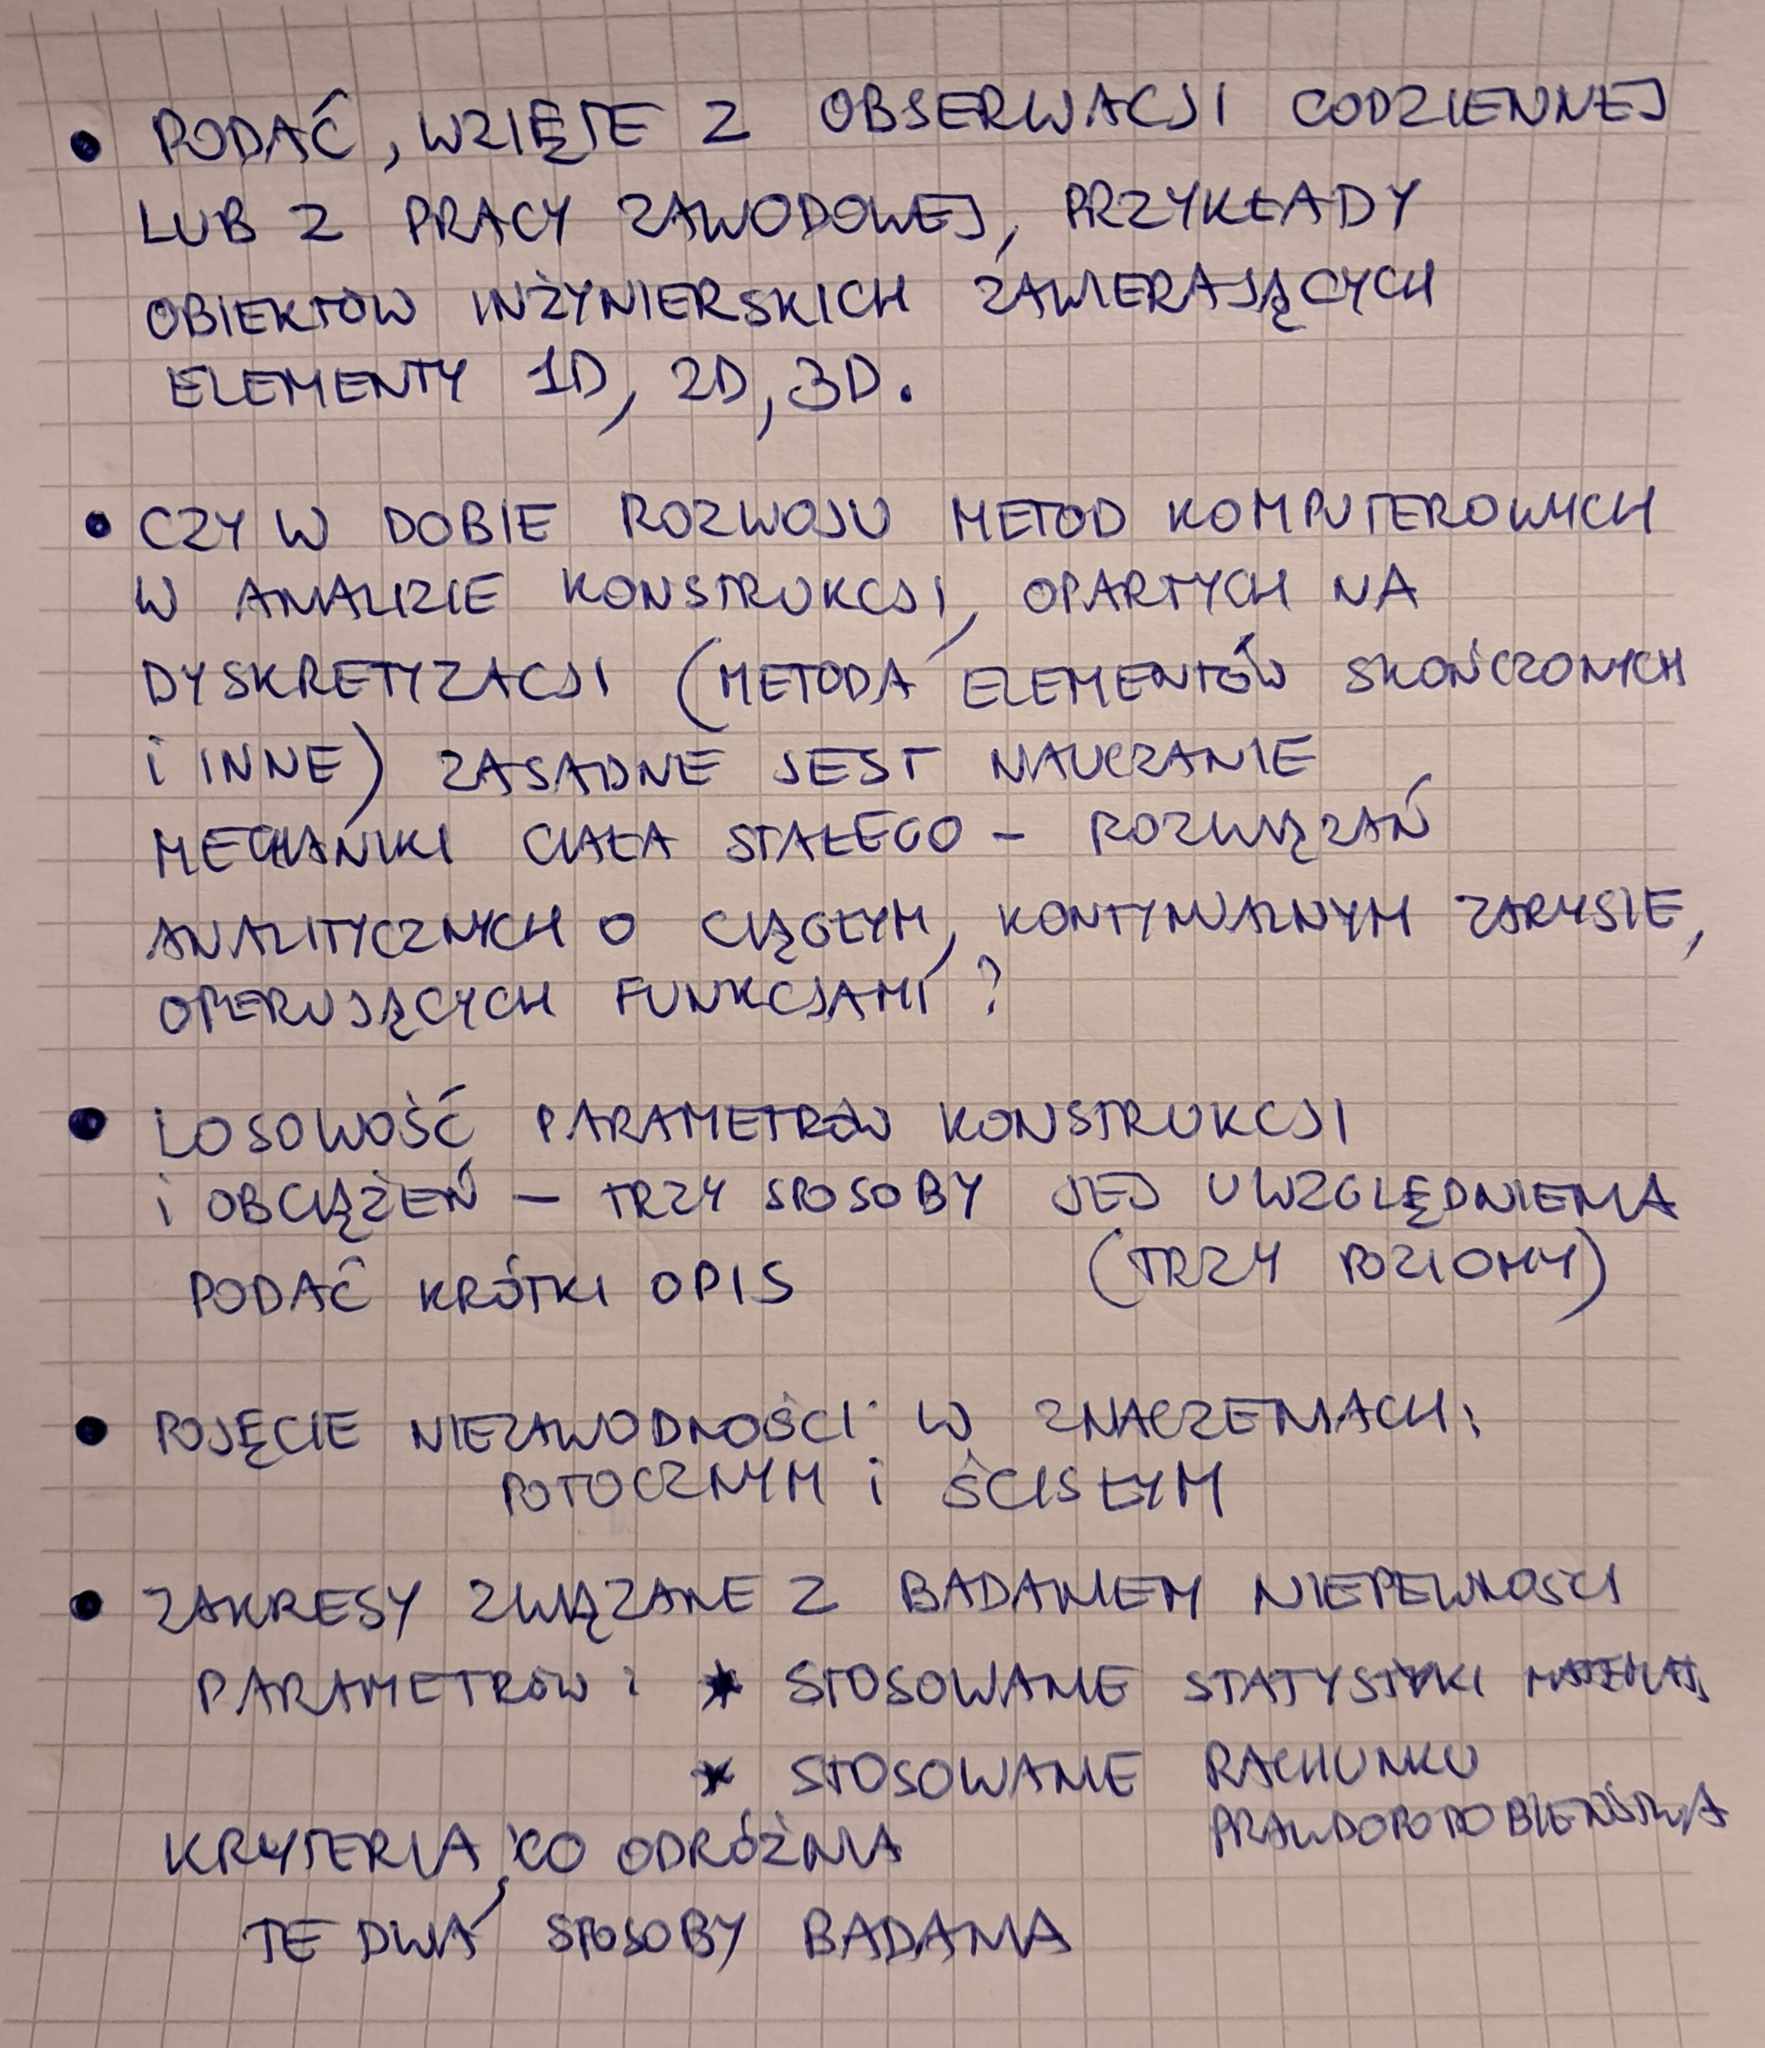 • PODAĆ, WZIĘTE Z OBSERWACJI CODZIENNEJ
LUB Z PRACY ZAWODOWEJ, PRZYKŁADY
OBIEKTÓW INŻYNIERSKICH ZAWIERAJĄCYCH
ELEMENTY 1D, 2D, 3D.
• CZY W DOBIE ROZWOJU METOD KOMPUTEROWYCH
W ANALIZIE KONSTRUKCJI, OPARTYCH NA
DYSKRETYZACJI (METODA ELEMENTÓW SKOŃCZONYCH
i INNE) ZASADNE JEST NAUCZANIE
MECHANIKI CIAŁA STAŁEGO – ROZWIĄZAŃ
ANALITYCZNYCH O CIĄGŁYM, KONTYNUALNYM ZARYSIE,
OPERUJĄCYCH FUNKCJAMI?
• LOSOWOŚĆ PARAMETRÓW KONSTRUKCJI
i OBCIĄŻEŃ – TRZY SPOSOBY JEJ UWZGLĘDNIENIA
PODAĆ KRÓTKI OPIS (TRZY POZIOMY)
• POJĘCIE NIEZAWODNOŚCI W ZNACZENIACH:
POTOCZNYM i ŚCISŁYM
• ZAKRESY ZWIĄZANE Z BADANIEM NIEPEWNOŚCI
PARAMETRÓW: * STOSOWANIE STATYSTYKI MATEMAT.
* STOSOWANIE RACHUNKU
PRAWDOPODOBIEŃSTWA
KRYTERIA, CO ODRÓŻNIA
TE DWA SPOSOBY BADANIA